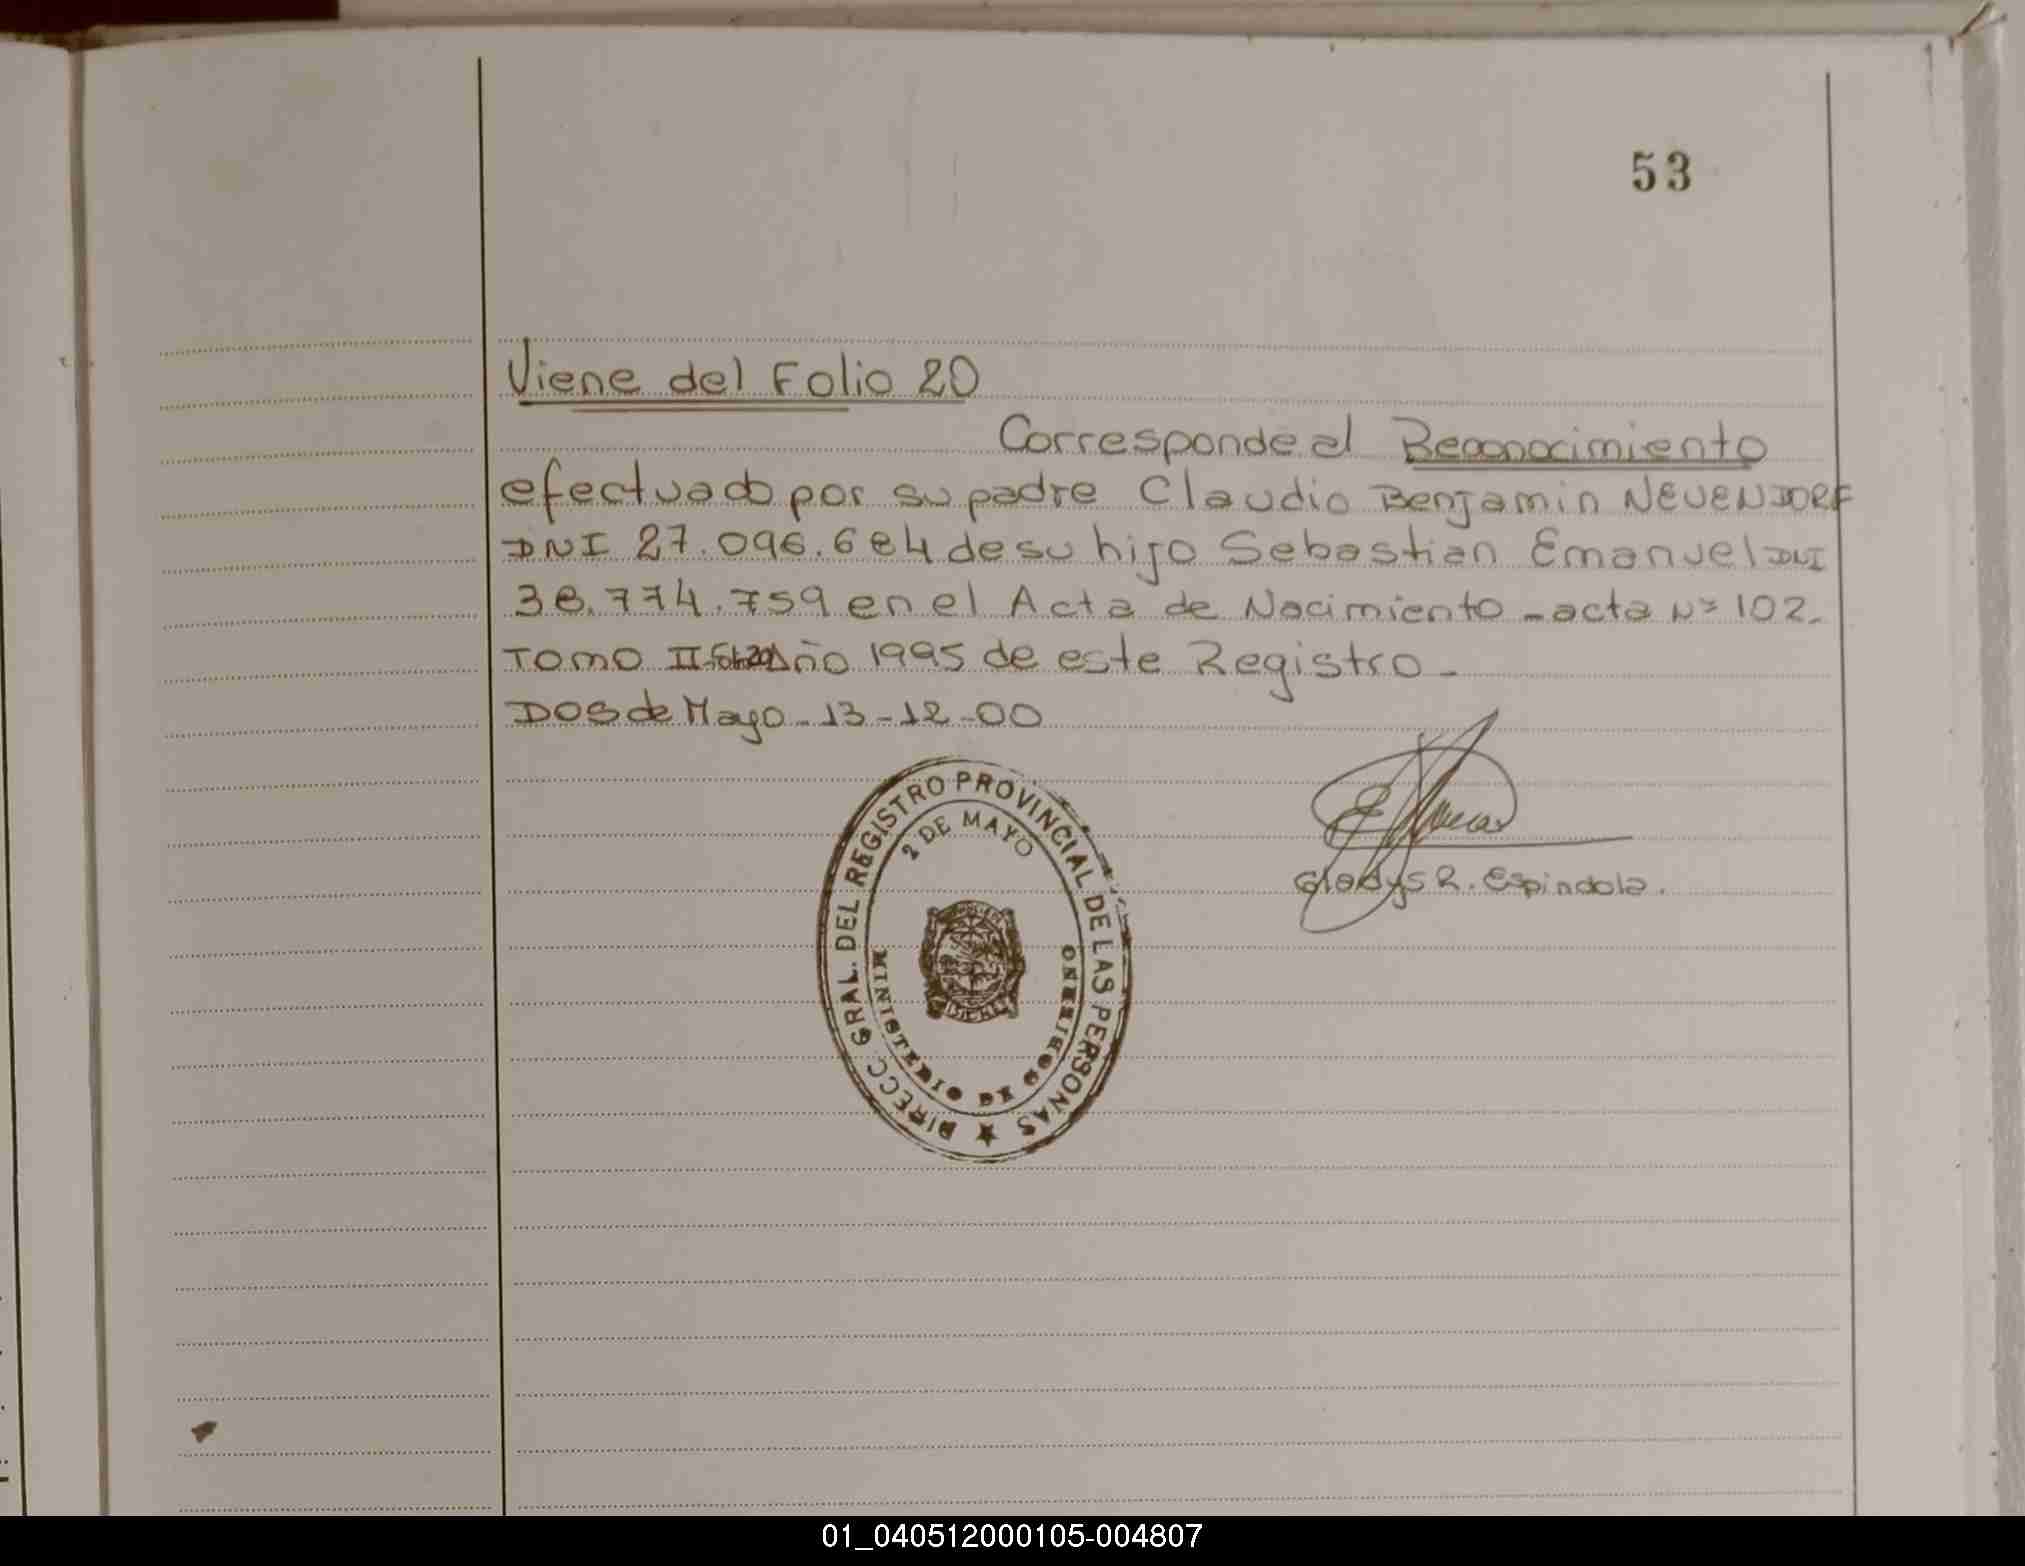 53
Viene del Folio 20
Corresponde al Reconocimiento
efectuado por su padre Claudio Benjamin NEUENDORF
DNI 27.096.684 de su hijo Sebastian Emanuel DNI
38.774.759 en el Acta de Nacimiento - acta Nº 102.
TOMO II Fol 20 Año 1995 de este Registro -
DOS de Mayo - 13 - 12 - 00
Gladys R. Espindola.
DIRECC GRAL. DEL REGISTRO PROVINCIAL DE LAS PERSONAS
2 DE MAYO
MINISTERIO DE GOBIERNO
01_040512000105-004807